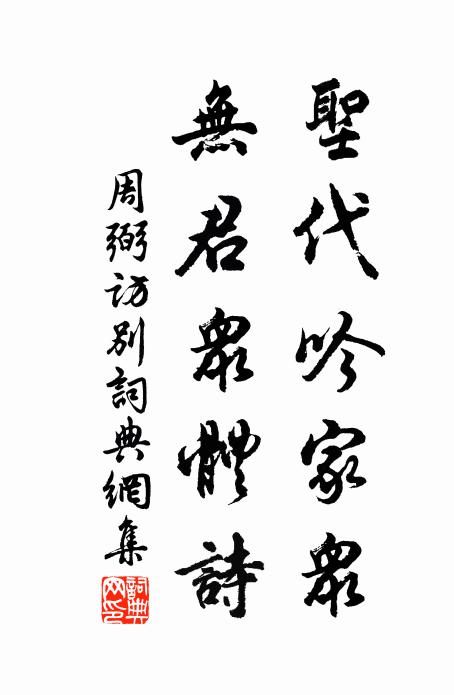 聖代吟家衆
無君衆體詩
周弼訪別詞典網集
詞典網印